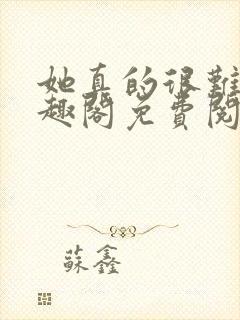 她真的很難
趣閣免費閱
蘇鑫